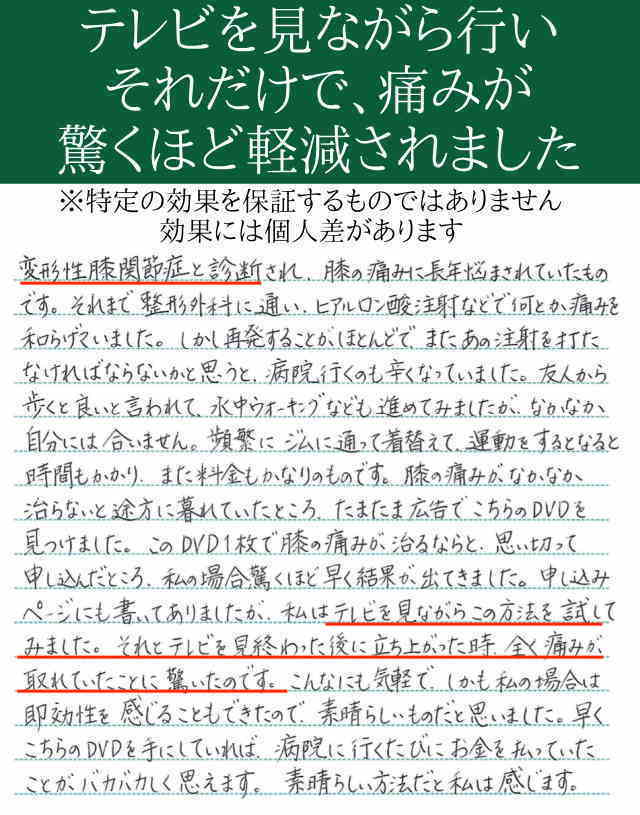 テレビを見ながら行い
それだけで、痛みが
驚くほど軽減されました
※特定の効果を保証するものではありません
効果には個人差があります
変形性膝関節症と診断され、膝の痛みに長年悩まされていたもの
です。それまで整形外科に通い、ヒアルロン酸注射などで何とか痛みを
和らげていました。しかし再発することがほとんどで、またあの注射を打た
なければならないかと思うと、病院行くのも辛くなっていました。友人から
歩くと良いと言われて、水中ウォーキングなども進めてみましたが、なかなか
自分には合いません。頻繁にジムに通って着替えて、運動をするとなると
時間もかかり、また料金もかなりのものです。膝の痛みがなかなか
治らないと途方に暮れていたところ、たまたま広告でこちらのDVDを
見つけました。このDVD1枚で膝の痛みが治るならと、思い切って
申し込んだところ、私の場合驚くほど早く結果が出てきました。申し込み
ページにも書いてありましたが、私はテレビを見ながらこの方法を試して
みました。それとテレビを見終わった後に立ち上がった時、全く痛みが
取れていたことに驚いたのです。こんなにも気軽で、しかも私の場合は
即効性を感じることもできたので、素晴らしいものだと思いました。早く
こちらのDVDを手にしていれば、病院に行くたびにお金を払っていた
ことがバカバカしく思えます。素晴らしい方法だと私は感じます。